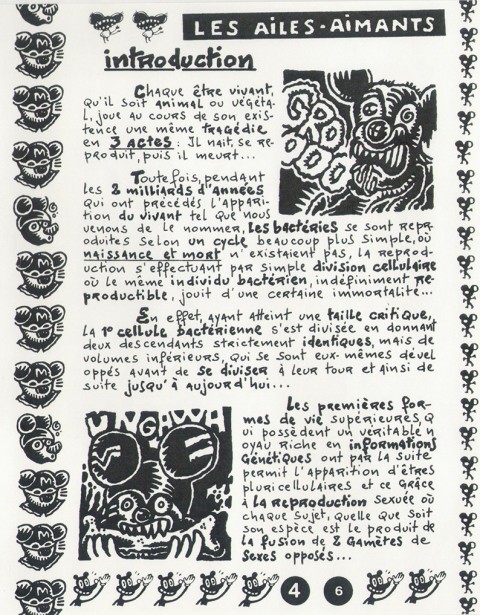 LES AILES-AIMANTS
introduction
Chaque être vivant,
qu'il soit animal ou végéta-
l, joue au cours de son exis-
tence une même tragédie
en 3 actes : Il nait, se re-
produit, puis il meurt...
Toutefois, pendant
les 2 milliards d'années
qui ont précédés l'appari-
tion du vivant tel que nous
venons de le nommer, les bactéries se sont repr-
oduites selon un cycle beaucoup plus simple, où
naissance et mort n'existaient pas, la reprod-
uction s'effectuant par simple division cellulaire
où le même individu bactérien, indéfiniment re-
productible, jouit d'une certaine immortalité...
En effet, ayant atteint une taille critique,
la 1e cellule bactérienne s'est divisée en donnant
deux descendants strictement identiques, mais de
volumes inférieurs, qui se sont eux-mêmes dével
oppés avant de se diviser à leur tour et ainsi de
suite jusqu'à aujourd'hui...
UNGAWA
Les premières for-
mes de vie supérieures, q
ui possèdent un véritable n
oyau riche en informations
génétiques ont par la suite
permit l'apparition d'êtres
pluricellulaires et ce grâce
à la reproduction sexuée où
chaque sujet, quelle que soit
son espèce est le produit de
la fusion de 2 gamètes de
sexes opposés...
4 6